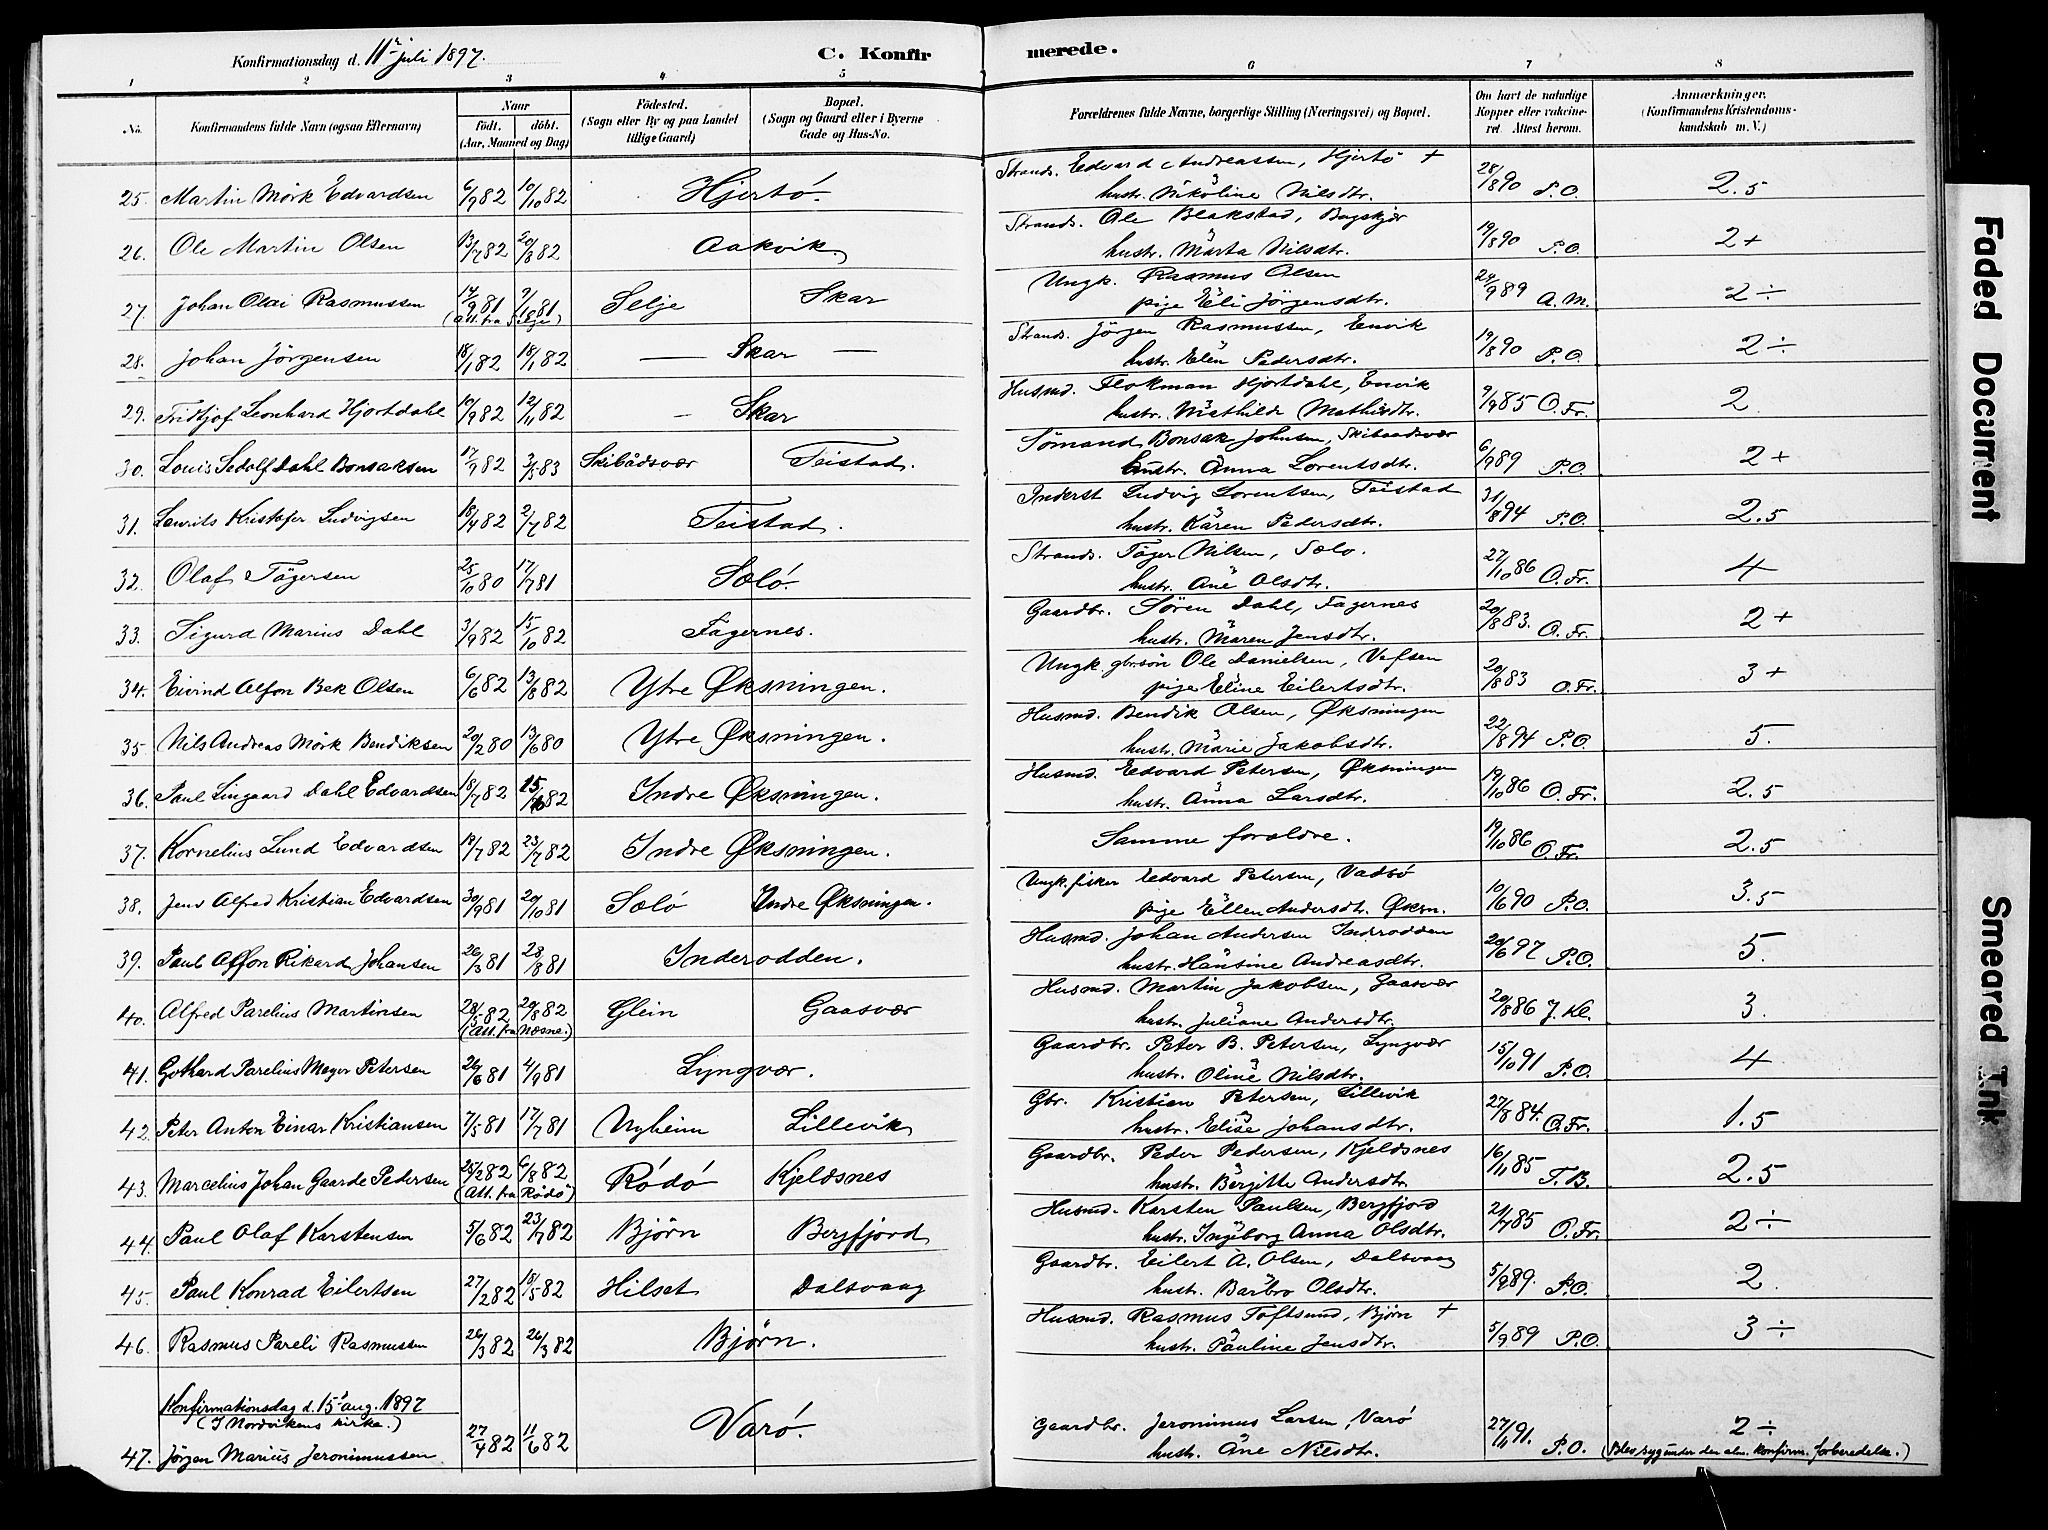 Konfirmationsdag d. 11te juli 1897.
C. Konfirmerede.
1 2 3 4 5 6 7 8
No. Konfirmandens fulde Navn (ogsaa Efternavn) Naar födt. döbt. (Aar, Maaned og Dag) Födested. (Sogn eller By og paa Landet tillige Gaard) Bopæl. (Sogn og Gaard eller i Byerne Gade og Hus-No. Forældrenes fulde Navne, borgerlige Stilling (Næringsvei) og Bopæl. Om havt de naturlige Kopper eller vakcineret Attest herom. Anmærkninger. (Konfirmandens Kristendomskundskab m. V.)
25. Martin Mörk Edvardsen 6/9 82 10/10 82 Hjertö. Strands. Edvard Andreassen, Hjertö + hustr. Nikoline Nilsdtr. 28/8 90 P.O. 2.5
26. Ole Martin Olsen 13/7 82 20/8 82 Aakvik. Strands. Ole Blakstad, Bagskjær hustr. Märta Nilsdtr. 19/8 90 P.O. 2+
27. Johan Olai Rasmussen 14/9 81 9/1 81 (Att. fra Selje) Selje Skar Ungk. Rasmus Olsen pige Eli Jörgensdtr. 24/9 89 A.M. 2÷
28. Johan Jörgensen 18/1 82 18/1 82 — Skar — Strands. Jörgen Rasmussen, Envik hustr. Elen Pedersdtr. 19/8 90 P.O. 2÷
29. Fridtjof Leonhard Hjortdahl 10/9 82 12/11 82 — Skar Husmd. Flokman Hjortdahl, Envik hustr. Mathilde Mathisdtr. 9/9 85 O.Fr. 2.
30. Louis Sedolf Dahl Bonsaksen 17/9 82 3/5 83 Skibådsvær Teistad. Sömand Bonsak Johnsen, Skibaadsvær hustr. Anna Lorentsdtr. 6/9 89 P.O. 2+
31. Laurits Kristofer Ludvigsen 18/4 82 2/7 82 Teistad. Inderst Ludvig Lorentsen, Teistad hustr. Karen Pedersdtr. 31/8 94 P.O. 2.5
32. Olaf Tögersen 25/10 80 17/7 81 Sælö. Strands. Töger Nilsen, Sælö. hustr. Ane Olsdtr. 27/10 86 O.Fr. 4
33. Sigurd Marius Dahl 3/9 82 15/10 82 Fagernes. Gaardbr. Sören Dahl, Fagernes hustr. Maren Jensdtr. 20/8 83. O.Fr. 2+
34. Eivind Alfon Bek Olsen 6/6 82 13/8 82 Ytre Øksningen. Ungk. gbr.sön Ole Danielsen, Vefsen pige Eline Eilertsdtr. 20/8 83 O.Fr. 3+
35. Nils Andreas Mörk Bendiksen 20/2 80 13/6 80 Ytre Øksningen. Husmd. Bendik Olsen, Øksningen hustr. Marie Jakobsdtr. 22/8 94 P.O. 5.
36. Paul Lingaard Dahl Edvardsen 18/7 82 15/10 82 Indre Øksningen. Husmd. Edvard Petersen, Øksningen hustr. Anna Larsdtr. 19/10 86 O.Fr. 2.5
37. Kornelius Lund Edvardsen 18/7 82 23/7 82 Indre Øksningen. Samme forældre. 19/10 86 O.Fr. 2.5
38. Jens Alfred Kristian Edvardsen 30/9 81 20/10 81 Sælö Indre Øksningen. Ungk. fisker Edvard Petersen, Vadsö pige Ellen Andersdtr. Øksn. 10/6 90 P.O. 3.5
39. Paul Alfon Rikard Johansen 26/3 81 28/8 81 Inderodden. Husmd. Johan Andersen Inderodden hustr. Hansine Andreasdtr. 20/6 97 P.O. 5.
40. Alfred Parelius Martinsen 28/5 82 20/8 82 (Att. fra Næsne.) Glein Gaasvær Husmd. Martin Jakobsen, Gaasvær hustr. Juliane Andersdtr. 20/8 86 J.Kl. 3.
41. Gothard Parelius Meyer Petersen 26/6 81 4/9 81 Lyngvær. Gaardbr. Peter B. Petersen, Lyngvær hustr. Oline Nilsdtr. 15/10 91 P.O. 4
42. Peter Anton Einar Kristiansen 7/5 81 17/7 81 Nyheim Lillevik Gbr. Kristian Petersen, Lillevik hustr. Elise Johansdtr. 27/8 84. O.Fr. 1.5
43. Marcelius Johan Gaarde Pedersen 25/2 82 6/8 82 (Att. fra Rödö) Rödö Kjeldsnes Gaardbr. Peder Pedersen, Kjeldsnes hustr. Bergitte Andersdtr. 16/11 85 T.B. 2.5
44. Paul Olaf Karstensen 5/6 82 23/7 82 Björn Bergfjord Husmd. Karsten Paulsen, Bergfjord hustr. Ingeborg Anna Olsdtr. 21/7 85 O.Fr. 2÷
45. Paul Konrad Eilertsen 27/2 82 18/5 82 Hilset Dalsvaag Gaardbr. Eilert A. Olsen, Dalsvaag hustr. Barbro Olsdtr. 5/9 89. P.O. 2.
46. Rasmus Pareli Rasmussen 26/3 82 26/3 82 Björn. Husmd. Rasmus Toftsund, Björn + hustr. Pauline Jensdtr. 5/9 89 P.O. 3÷
Konfirmationsdag d. 15de aug. 1897
(I Nordvikens kirke.)
47. Jörgen Marius Jeronimussen 27/4 82 11/6 82 Varö. Gaardbr. Jeronimus Larsen, Varö hustr. Ane Nilsdtr. 27/11 91. P.O. 2÷ syg under den alm. konfirm. forberedelse.)
Faded Document
Smeared Ink